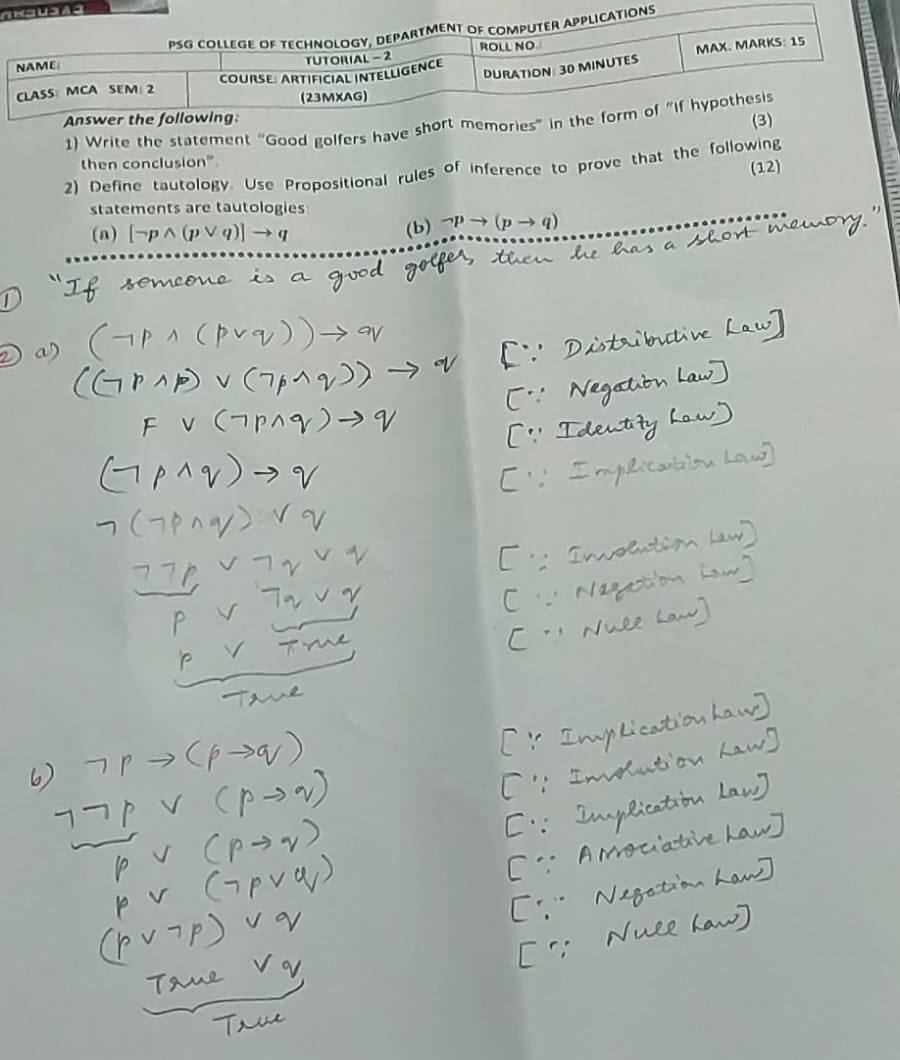 PSG COLLEGE OF TECHNOLOGY, DEPARTMENT OF COMPUTER APPLICATIONS
NAME: TUTORIAL – 2 ROLL NO.
CLASS: MCA SEM: 2 COURSE: ARTIFICIAL INTELLIGENCE (23MXAG) DURATION: 30 MINUTES MAX. MARKS: 15
Answer the following:
1) Write the statement "Good golfers have short memories" in the form of "If hypothesis
then conclusion". (3)
2) Define tautology. Use Propositional rules of inference to prove that the following
statements are tautologies (12)
(a) [¬p ∧ (p ∨ q)] → q (b) ¬p → (p → q)
① "If someone is a good golfer, then he has a short memory."
② a) (¬p ∧ (p∨q)) → q
((¬p ∧ p) ∨ (¬p ∧ q)) → q [∵ Distributive Law]
F ∨ (¬p∧q) → q [∵ Negation Law]
(¬p ∧ q) → q [∵ Identity Law]
¬(¬p∧q) ∨ q [∵ Implication Law]
¬¬p ∨ ¬q ∨ q
p ∨ ¬q ∨ q [∵ Involution Law]
p ∨ True [∵ Negation Law]
True [∵ Null Law]
b) ¬p → (p→q)
¬¬p ∨ (p→q) [∵ Implication Law]
p ∨ (p→q) [∵ Involution Law]
p ∨ (¬p∨q) [∵ Implication Law]
(p∨¬p) ∨ q [∵ Associative Law]
True ∨ q [∵ Negation Law]
True [∵ Null Law]